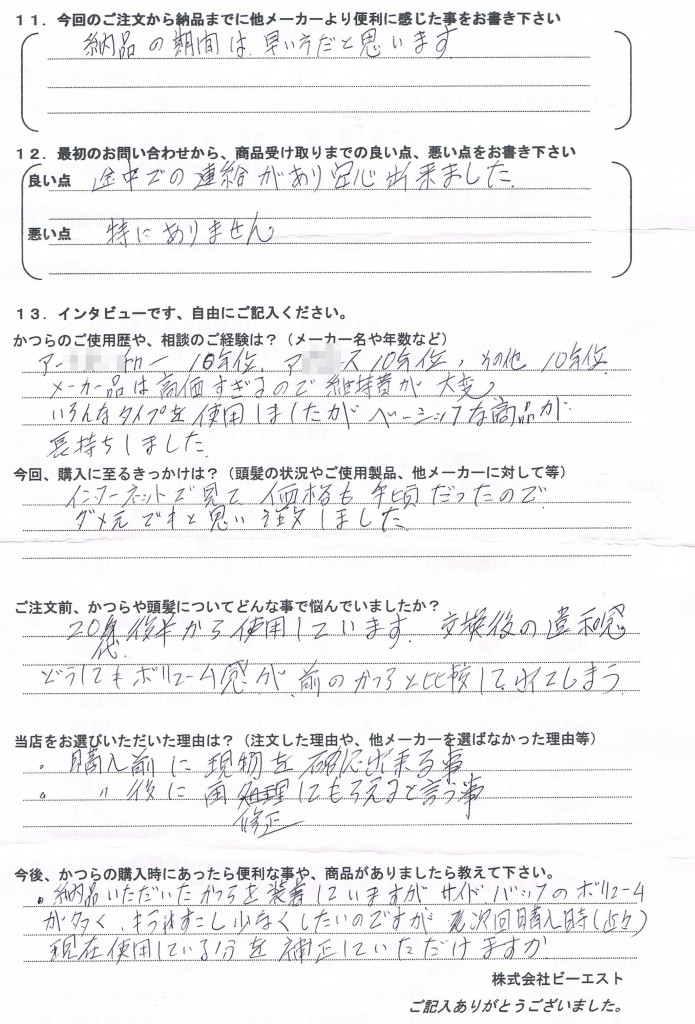 11．今回のご注文から納品までに他メーカーより便利に感じた事をお書き下さい
納品の期間は、早い方だと思います
12．最初のお問い合わせから、商品受け取りまでの良い点、悪い点をお書き下さい
良い点 途中での連絡があり安心出来ました.
悪い点 特にありません
13．インタビューです、自由にご記入ください。
かつらのご使用歴や、相談のご経験は？（メーカー名や年数など）
アー 10年位、ア ス10年位、その他 10年位
メーカー品は高価すぎるので維持費が大変。
いろんなタイプを使用しましたがベーシックな商品が
長持ちしました.
今回、購入に至るきっかけは？（頭髪の状況やご使用製品、他メーカーに対して等）
インターネットで見て価格も手頃だったので
ダメ元でもと思い注文しました
ご注文前、かつらや頭髪についてどんな事で悩んでいましたか？
20代後半から使用しています. 交換後の違和感
どうしてもボリューム感が、前のかつらと比較して出てしまう
当店をお選びいただいた理由は？（注文した理由や、他メーカーを選ばなかった理由等）
・購入前に現物を確認出来る事
・ 〃 後に再 修正してもらえると言う事
今後、かつらの購入時にあったら便利な事や、商品がありましたら教えて下さい。
・納品いただいたかつらを装着していますがサイド、バックのボリューム
が多く、もう少しすこし少なくしたいのですが 次回購入時（近々）
現在使用している分を補正していただけますか
株式会社ビーエスト
ご記入ありがとうございました。